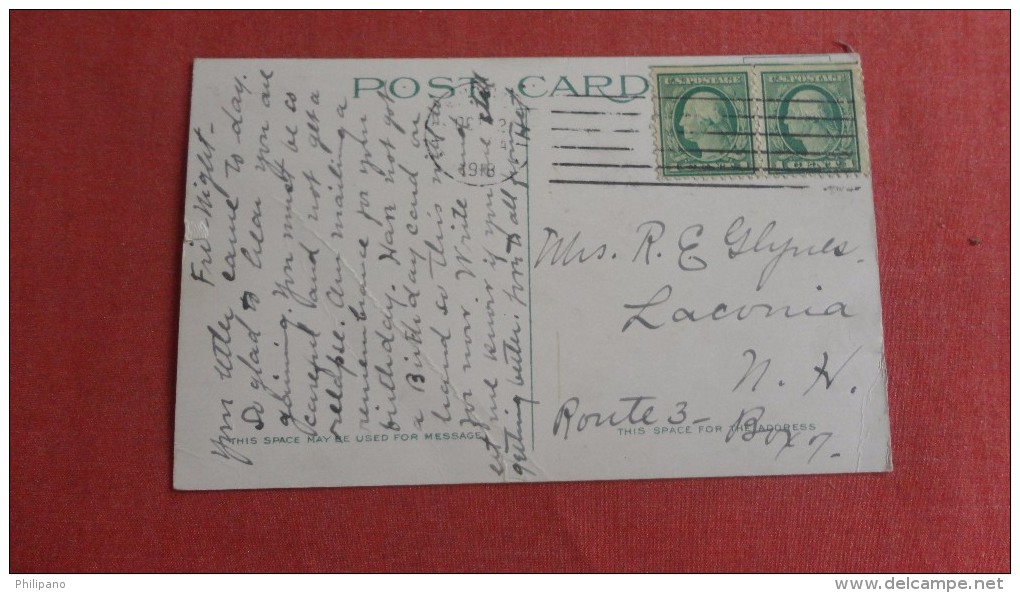 POST CARD
U.S. POSTAGE
U.S. POSTAGE
1918
Fri Night -
Your letter came to day.
So glad to hear you are
gaining. You must be so
careful and not get a
relapse. Am mailing a
remembrance for your
birthday. Have not got
a Birth day card on
hand so this will do
for now. Write and
let me know if you are still
getting better. from
Mrs. R. E Glynes.
Laconia
N. H.
Route 3-
Box 7.
THIS SPACE MAY BE USED FOR MESSAGE
THIS SPACE FOR THE ADDRESS
Philipano
www.delcampe.net